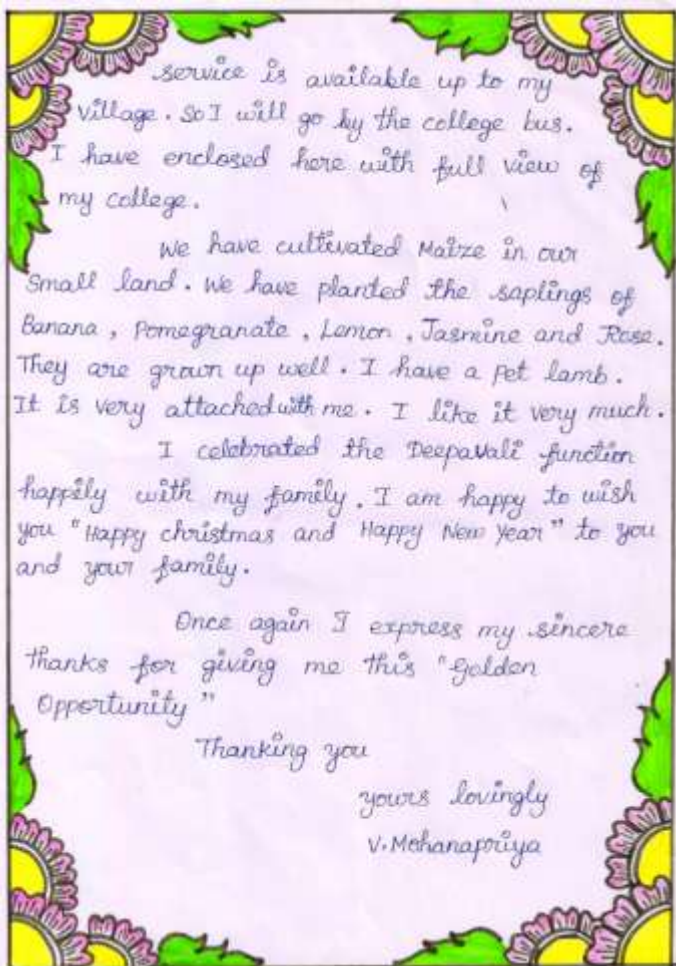 service is available up to my
village. So I will go by the college bus.
I have enclosed here with full view of
my college.
We have cultivated Maize in our
Small land. We have planted the saplings of
Banana, Pomegranate, Lemon, Jasmine and Rose.
They are grown up well. I have a pet lamb.
It is very attached with me. I like it very much.
I celebrated the Deepavali function
happily with my family. I am happy to wish
you "Happy christmas and Happy New Year" to you
and your family.
Once again I express my sincere
thanks for giving me this "Golden
Opportunity"
Thanking you
yours lovingly
V. Mohanapriya